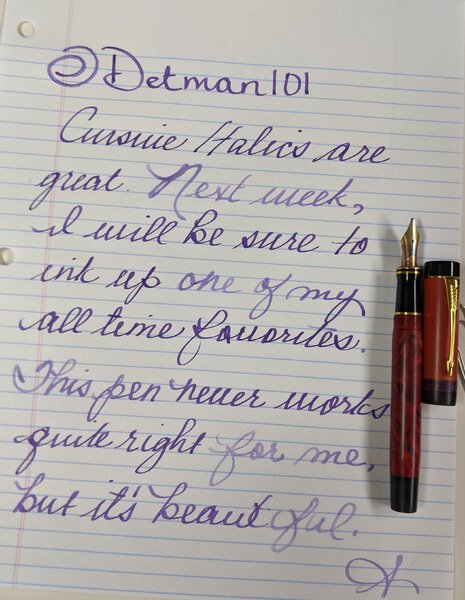 @Detman101
Cursive Italics are
great. Next week,
I will be sure to
ink up one of my
all time favorites.
This pen never works
quite right for me,
but it's beautiful.